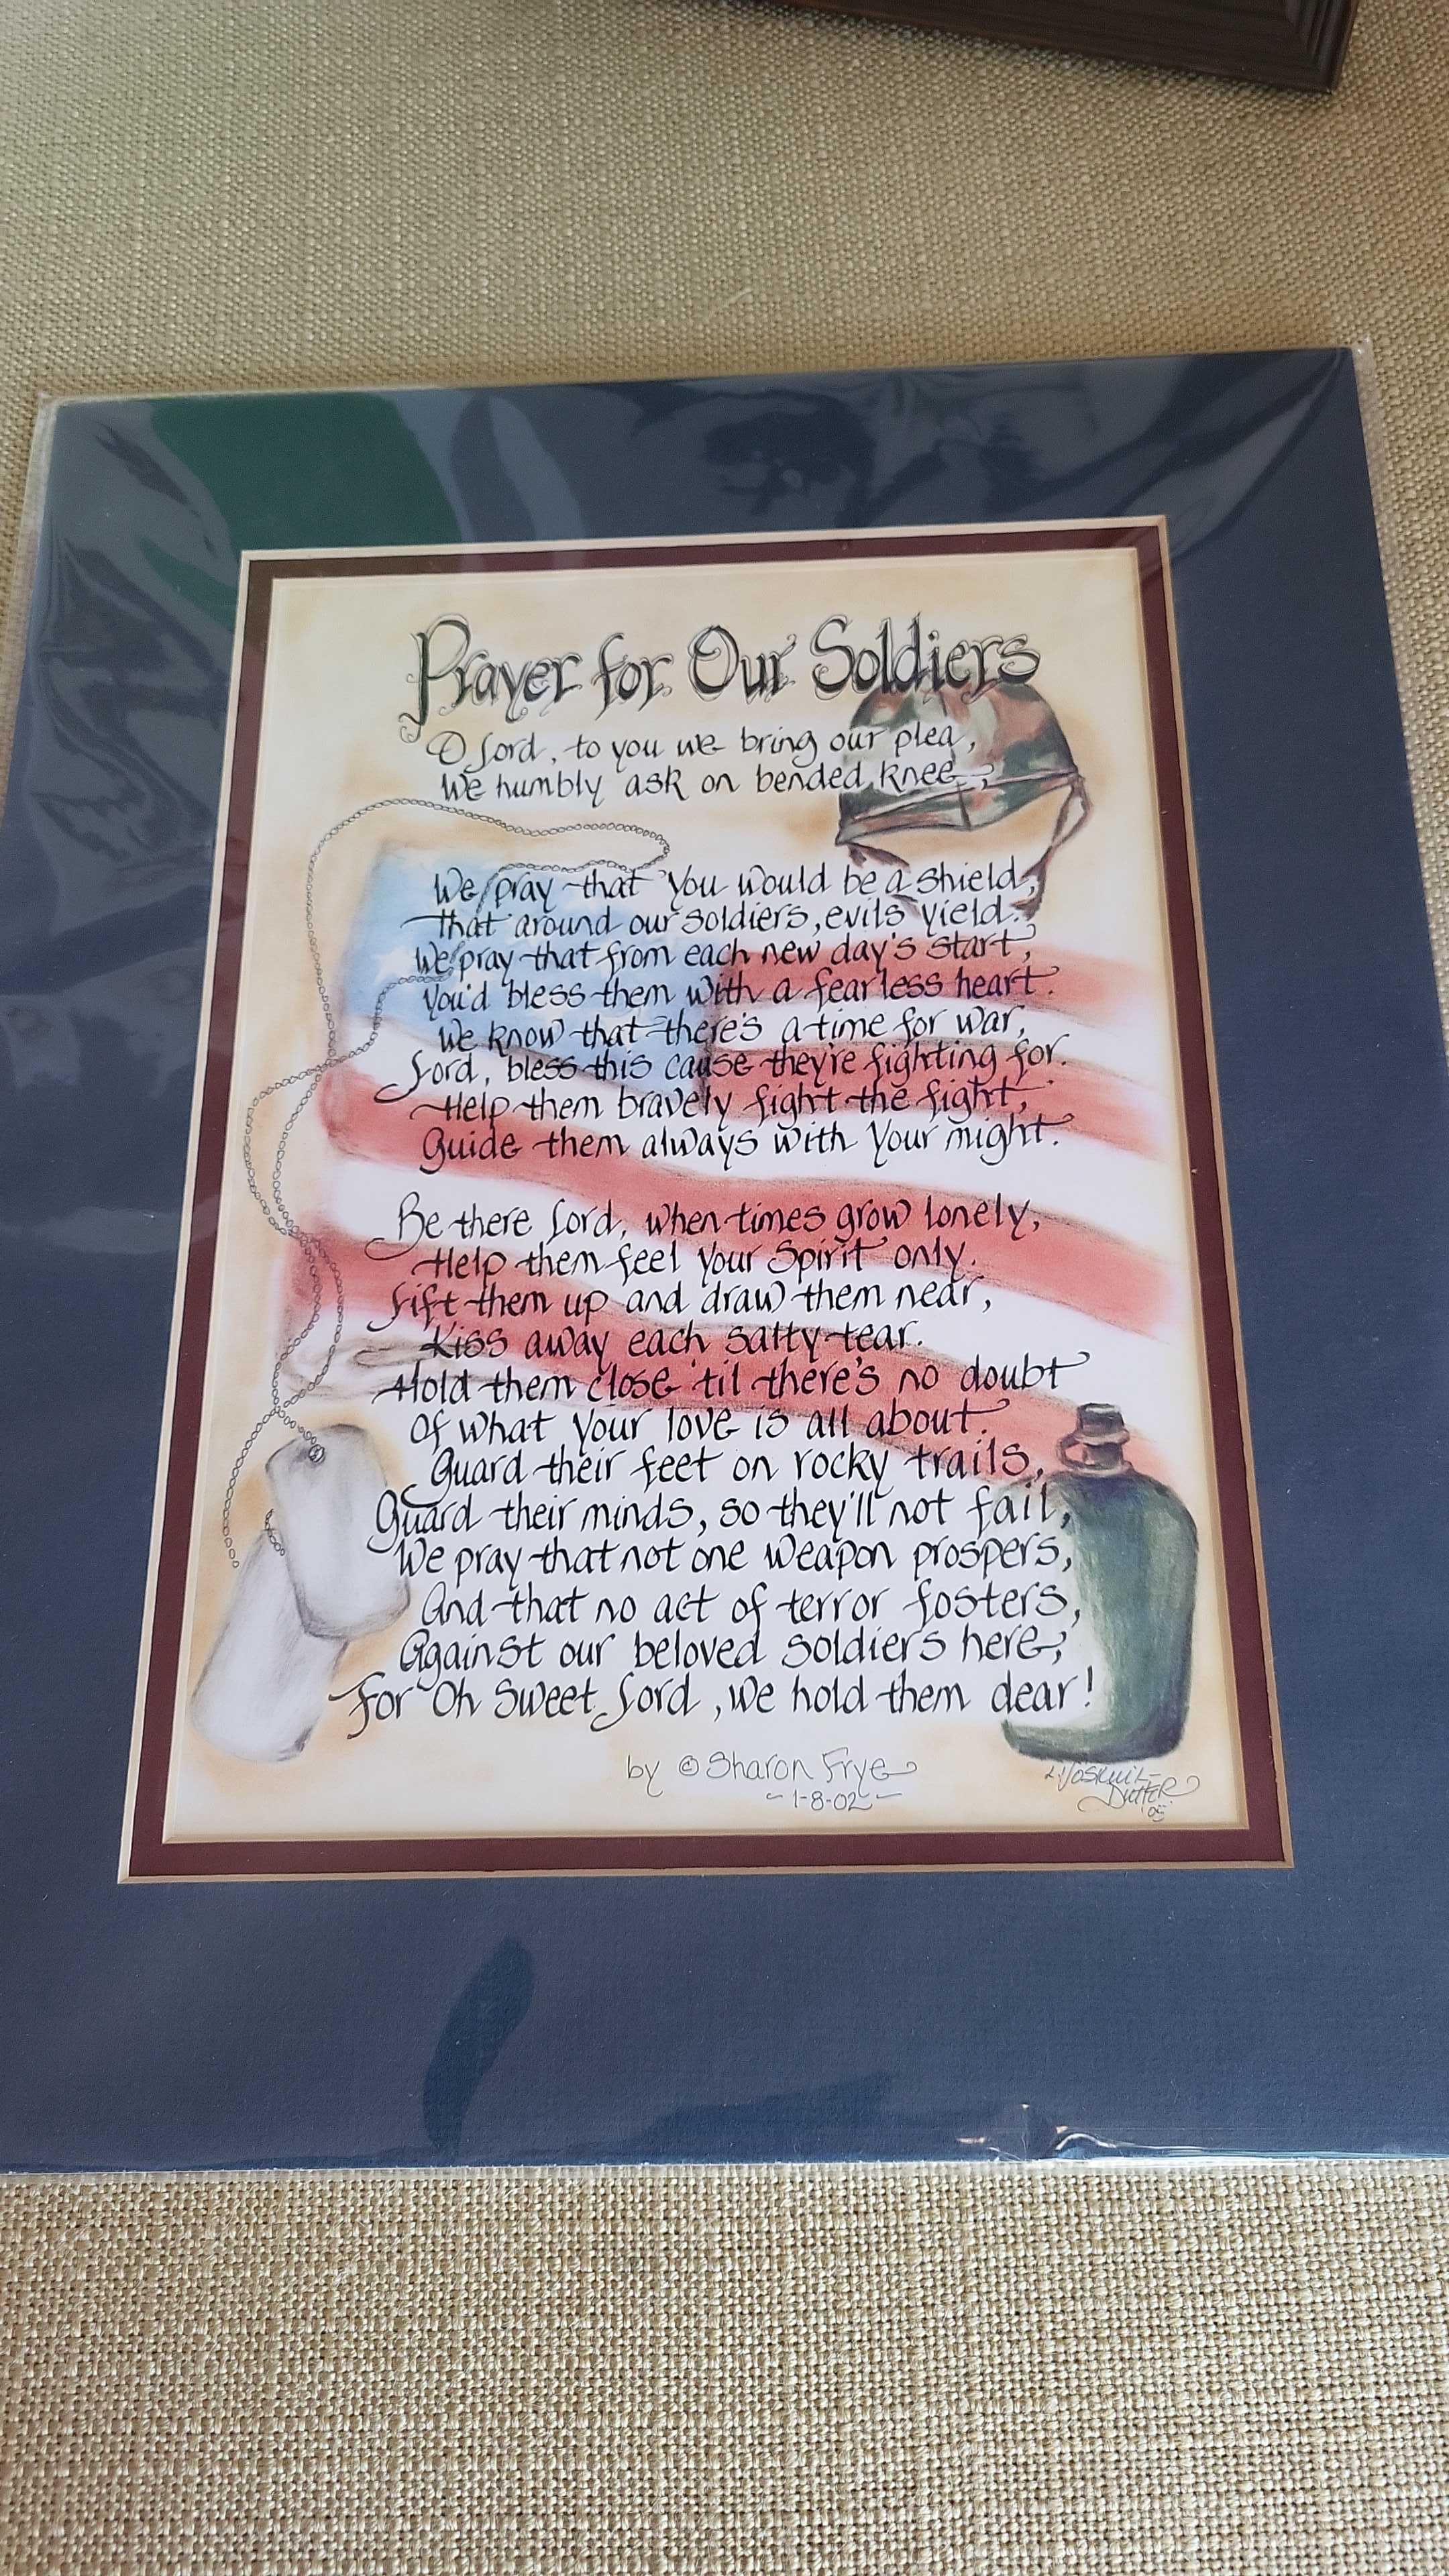 Prayer for Our Soldiers
O Lord, to you we bring our plea,
We humbly ask on bended knee;
We pray that You would be a shield,
That around our soldiers, evils yield.
We pray that from each new day's start,
You'd bless them with a fearless heart.
We know that there's a time for war,
Lord, bless this cause they're fighting for.
Help them bravely fight the fight,
Guide them always with Your might.
Be there Lord, when times grow lonely,
Help them feel Your Spirit only.
Lift them up and draw them near,
Kiss away each salty tear.
Hold them close 'til there's no doubt
Of what Your love is all about.
Guard their feet on rocky trails,
Guard their minds, so they'll not fail,
We pray that not one weapon prospers,
And that no act of terror fosters,
Against our beloved soldiers here;
For Oh Sweet Lord, we hold them dear!
by © Sharon Frye
-1-8-02-